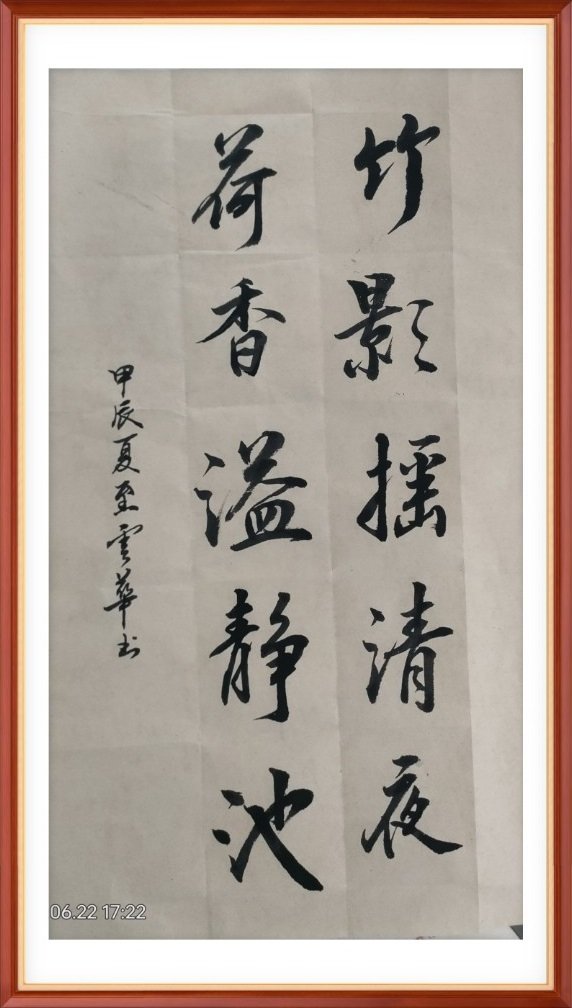 竹影摇清夜
荷香溢静池
甲辰夏至雲華书
06.22 17:22